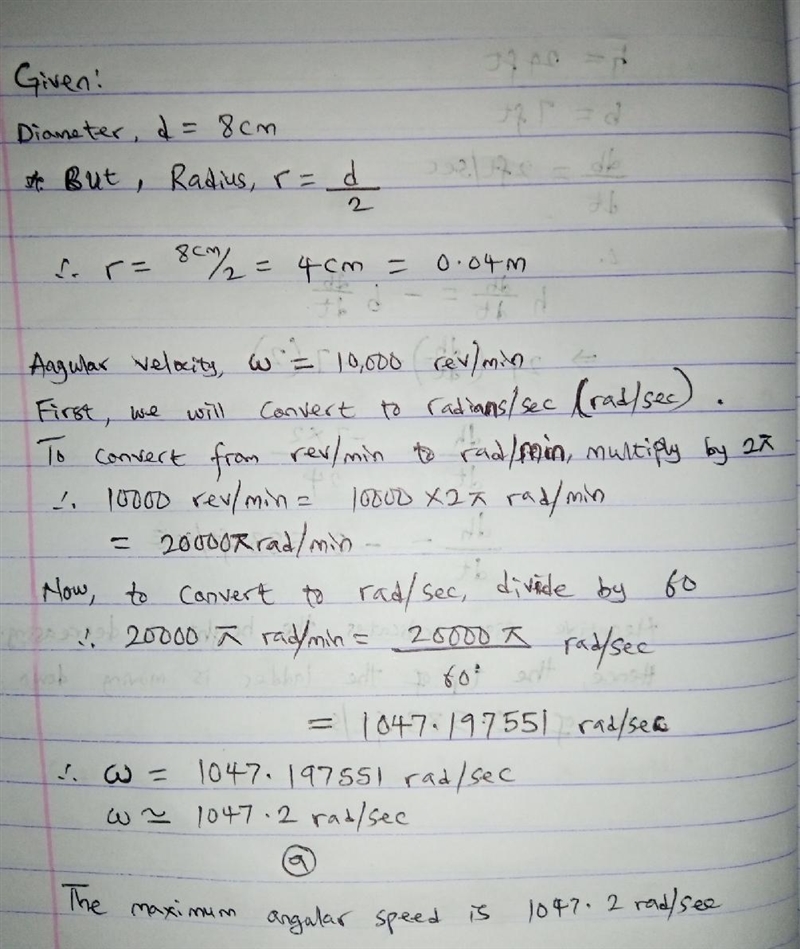 Given:
Diameter, d = 8cm
* But, Radius, r = d/2
∴ r = 8cm/2 = 4cm = 0.04m
Angular velocity, ω = 10,000 rev/min
First, we will convert to radians/sec (rad/sec).
To convert from rev/min to rad/min, multiply by 2π
∴ 10000 rev/min = 10000 × 2π rad/min
= 20000π rad/min
Now, to convert to rad/sec, divide by 60
∴ 20000 π rad/min = 20000 π/60 rad/sec
= 1047.197551 rad/sec
∴ ω = 1047.197551 rad/sec
ω ≃ 1047.2 rad/sec
(a)
The maximum angular speed is 1047.2 rad/sec